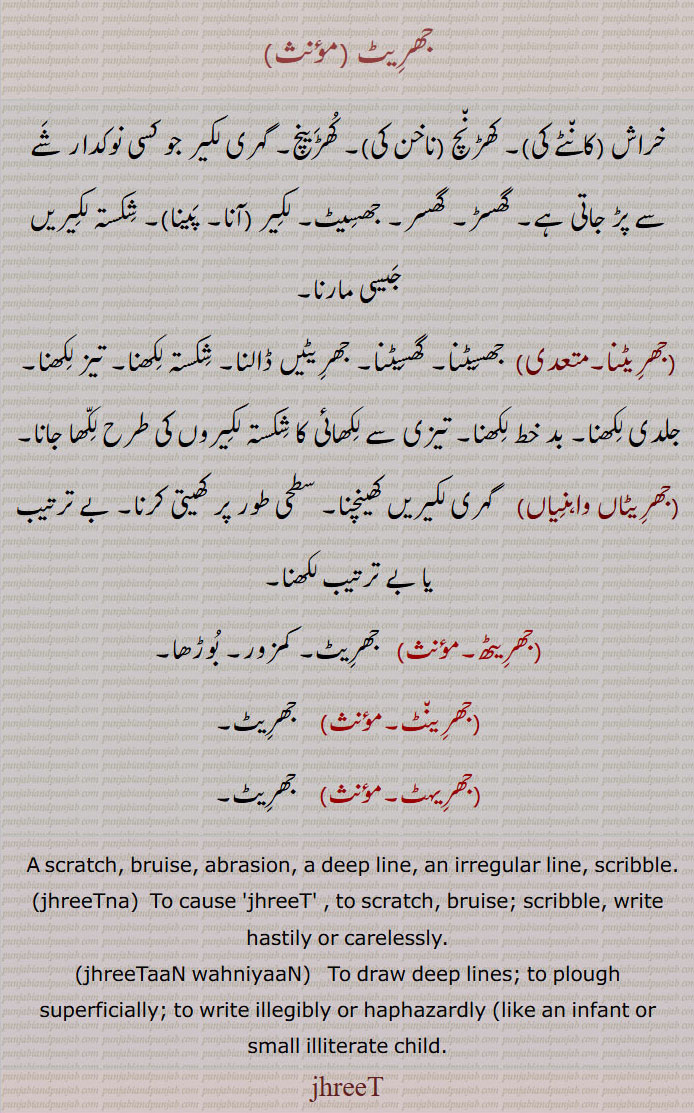 جھرِیٹ (مؤنث)
خراش (کانٹے کی)۔ کھڑنّچ (ناخن کی)۔ کُھڑَینچ۔ گہری لکیر جو کسی نوکدار شَے
سے پڑ جاتی ہے۔ گھسڑ۔ گھسر۔ جھسِیٹ۔ لکِیر (آنا۔ پَینا)۔ شِکستہ لکِیریں
جَیسی مارنا۔
(جھرِیٹنا۔متعدی) جھسِیٹنا۔ گھسِیٹنا۔ جھرِیٹیں ڈالنا۔ شِکستہ لِکھنا۔ تیز لِکھنا۔
جلدی لِکھنا۔ بد خط لِکھنا۔ تیزی سے لِکھائی کا شِکستہ لکِیروں کی طرح لِکّھا جانا۔
(جھرِیٹاں واہنِیاں) گہری لکیریں کھینچنا۔ سطحی طور پر کھیتی کرنا۔ بے ترتیب
یا بے ترتیب لکھنا۔
(جھرِیٹھ۔مؤنث) جھرِیٹ۔ کمزور۔ بُوڑھا۔
(جھرِینّٹ۔مؤنث) جھرِیٹ۔
(جھرِیہٹ۔مؤنث) جھرِیٹ۔
A scratch, bruise, abrasion, a deep line, an irregular line, scribble.
(jhreeTna) To cause 'jhreeT' , to scratch, bruise; scribble, write
hastily or carelessly.
(jhreeTaaN wahniyaaN) To draw deep lines; to plough
superficially; to write illegibly or haphazardly (like an infant or
small illiterate child.
jhreeT